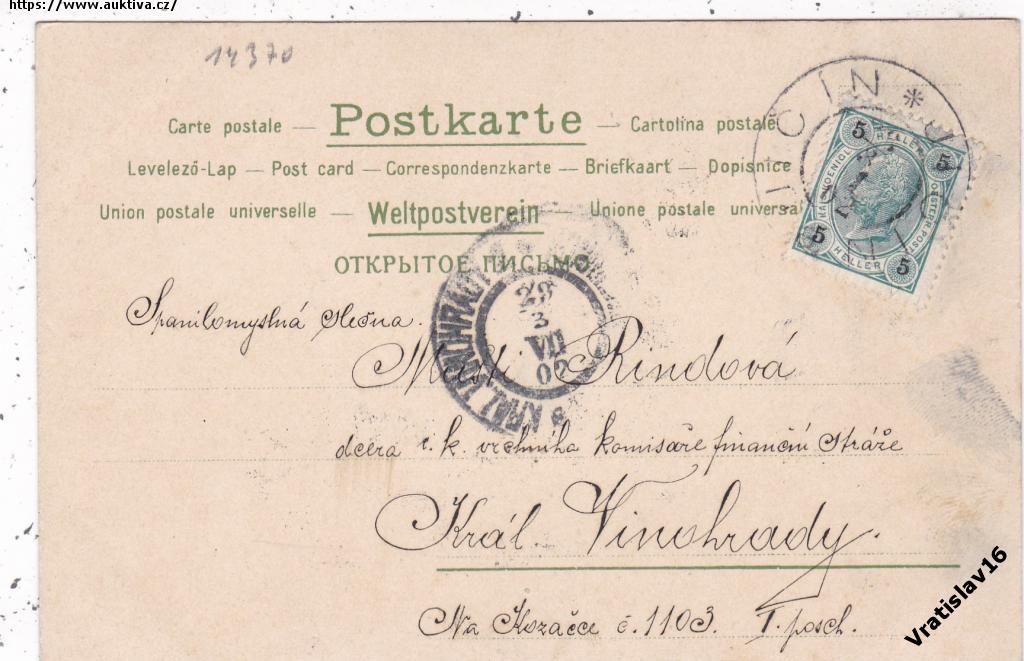 https://www.auktiva.cz/
14370
Carte postale — Postkarte — Cartolina postale
Levelező-Lap — Post card — Correspondenzkarte — Briefkaart — Dopisnice
Union postale universelle — Weltpostverein — Unione postale universal
ОТКРЫТОЕ ПИСЬМО
JIČÍN *
5 HELLER 5
KAIS. KOENIGL. OESTERR. POST
5 HELLER 5
KRÁL. VINOHRADY
23
3
VII
02
Spanilomyslná slečna.
Rindová
dcera c. k. vrchního komisaře finanční stráže
Král. Vinohrady.
Na Kozačce č. 1103. I. posch.
Vratislav16